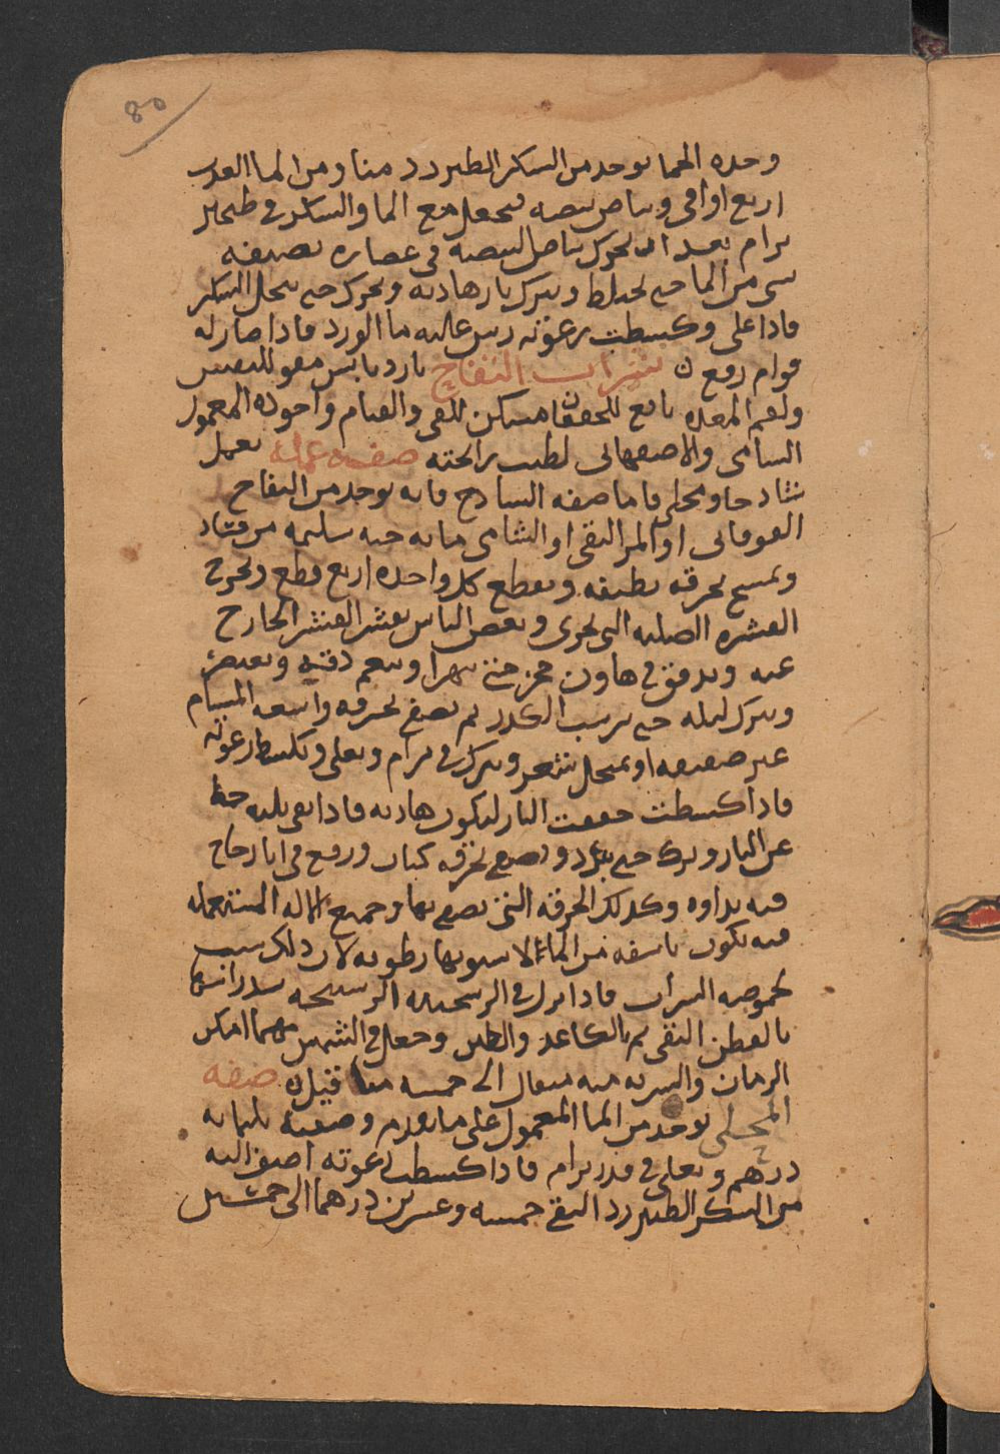 80
وحده الحما يوخد من السكر الطبرزد منا ومن الما العدب
اربع اواقي وبياض بيضه يجعل مع الما والسكر في طنجير
برام بعد ان يحرك بياض البيضه في عصاره نصيفه
سي من الما حتى يختلط ويترك بارهاديه ويحرك حتى ينحل السكر
فادا غلى وكسطت رغوته رس عليه ما الورد فادا صار له
قوام رفع ن شراب التفاح بارد يابس مقو للنفس
ولفم المعده نافع للخفقان مسكن للقي والغيام واجوده المعمول
الشامي والاصفهاني لطيب رايحته صفه عمله يعمل
سادجا ومحلي فاما صفه السادج فانه يوخد من التفاح
الفوقاني او المر النقي او الشامي مايه حبه سليمه من فساد
ويمسح بخرقه نظيفه ويقطع كل واحده اربع قطع ويخرج
القشره الصلبه التي تحوي وبعض الناس يقشر القشر الخارج
عنه ويدق في هاون حجر حتى يتهرا وينعم دقه ويعصر
ويترك ليله حتى يرسب الكدر ثم يصفى بخرقه واسعه المسام
غير صفيقه او بمنخل شعر ويترك في برام ويغلي وتكسط رغوته
فادا كسطت خففت النار لتكون هاديه فادا بقي ثلثه حط
عن النار وترك حتى يبرد ويصفى بخرقه كتان ورفع في انا زجاج
فيه نداوه وكدلك الخرقه التي يصفى بها وجميع الاله المستعمله
فيه تكون ناشفه من الما لا يشوبها رطوبه لان دلك سبب
لحموضه الشراب فادا نزل في الزجاجه الرسيحه سد راسها
بالقطن النقي ثم بالكاغد والطين وجعل في الشمس مهما امكن
الزمان والشربه منه مثقال الى خمسه مثاقيل ن صفه
المحلي يوخد من الما المعمول على ما تقدم وصفيه ثلثمايه
درهم ويغلي في قدر برام فادا كسطت رغوته اضيف اليه
من السكر الطبرزد النقي خمسه وعشرين درهما الى خمسين